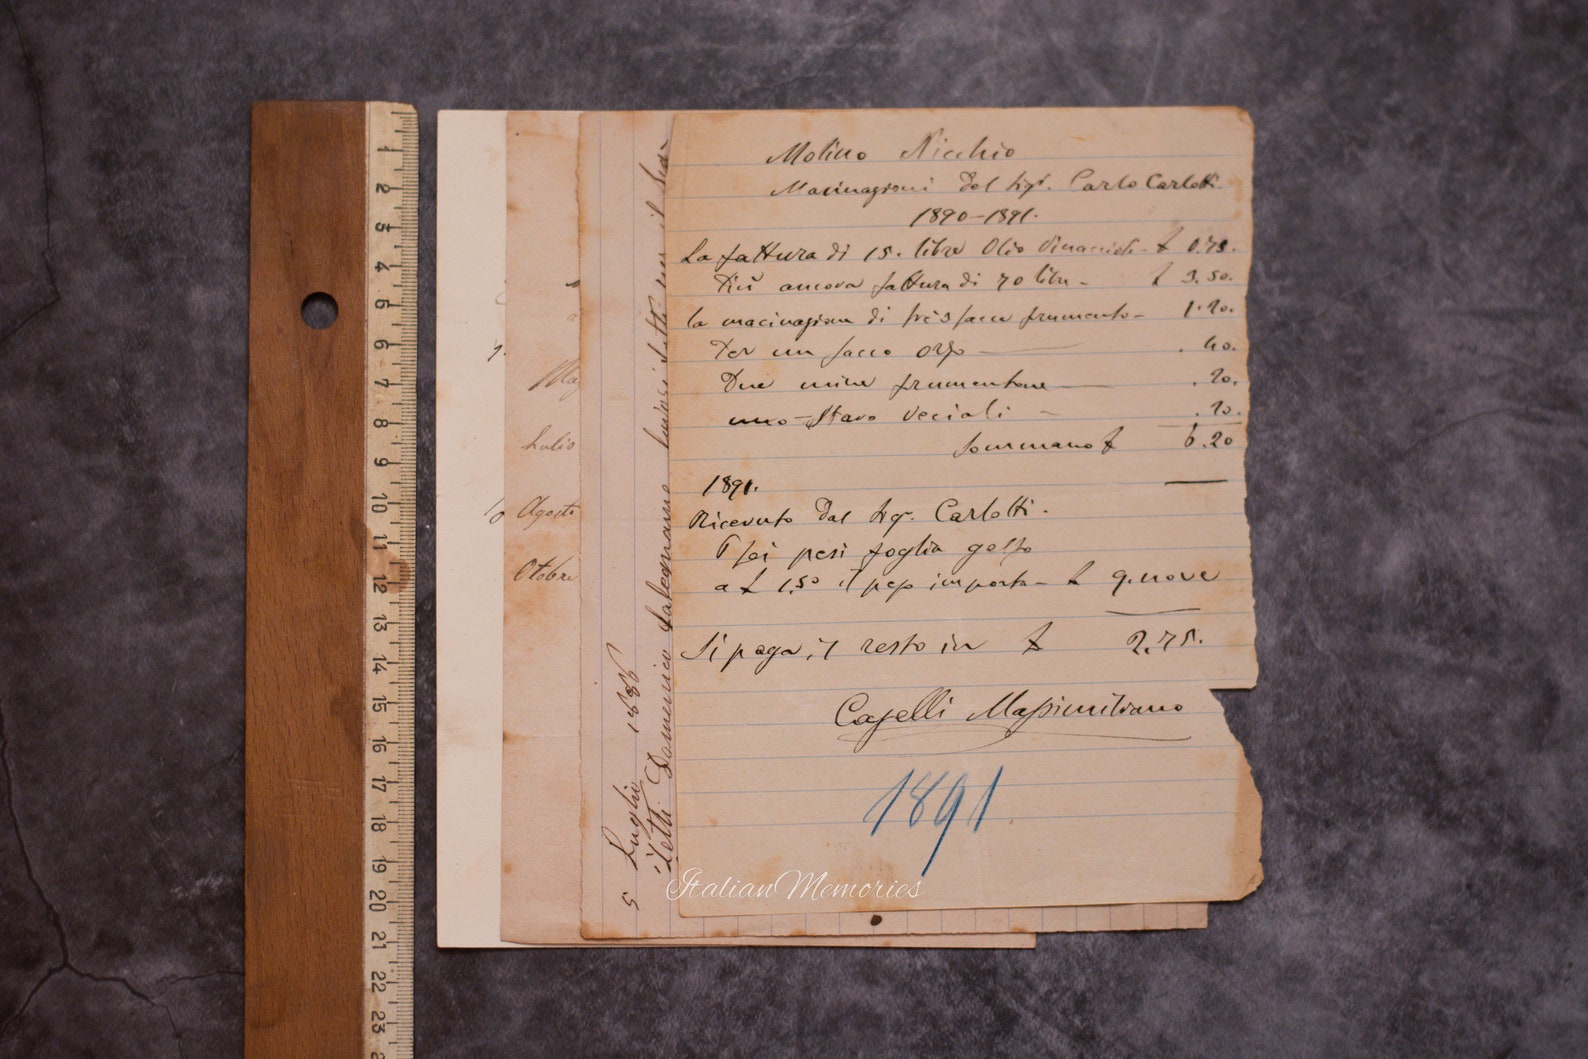 Molino Nicchio
Macinazioni Del Sigr. Carlo Carlotti.
1890-1891.
La fattura di 15. libre Olio Vinaccioli - £ 0.75.
Più ancora fattura di 70 libre - £ 3.50.
la macinazione di tré sacca frumento - 1.20.
Per un sacco orzo - . 40.
Due mine frumentone - . 20.
uno Staro Veciati - .
Sommano £ 6.20
1891.
Ricevuto Dal Sigr. Carlotti.
6 sei pesi foglia gelso
a £ 1.50 il peso importa - £ 9.nove
Si paga, il resto in £ 2.75.
Capelli Massimiliano
1891
5 Luglio 1886
Zetti Domenico falegname
Mag
Lulio
10 Agosto
Otobre
ItalianMemories
1
2
3
4
5
6
7
8
9
10
11
12
13
14
15
16
17
18
19
20
21
22
23